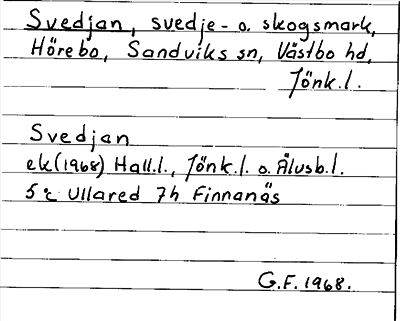 Svedjan, svedje- o. skogsmark,
Hörebo, Sandviks sn, Västbo hd,
Jönk.l.
Svedjan
ek(1968) Hall.l., Jönk.l. o. Älvsb.l.
5c Ullared 7h Finnanäs
G.F. 1968.